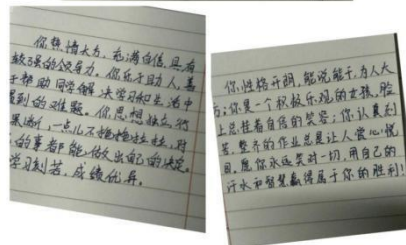 你热情大方,充满自信,具有
较强的领导力,你乐于助人,善
于帮助同学解决学习和生活中
遇到的难题。你思想独立,行
果断,一点儿不拖拖拉拉,对
的事都能做出自己的决定。
学习刻苦,成绩优异。
你性格开朗,能说能干,为人大
方;你是一个积极乐观的女孩,脸
上总挂着自信的笑容;你认真刻
苦,整齐的作业总是让人赏心悦
目。愿你永远笑对一切,用自己的
汗水和智慧赢得属于你的胜利!